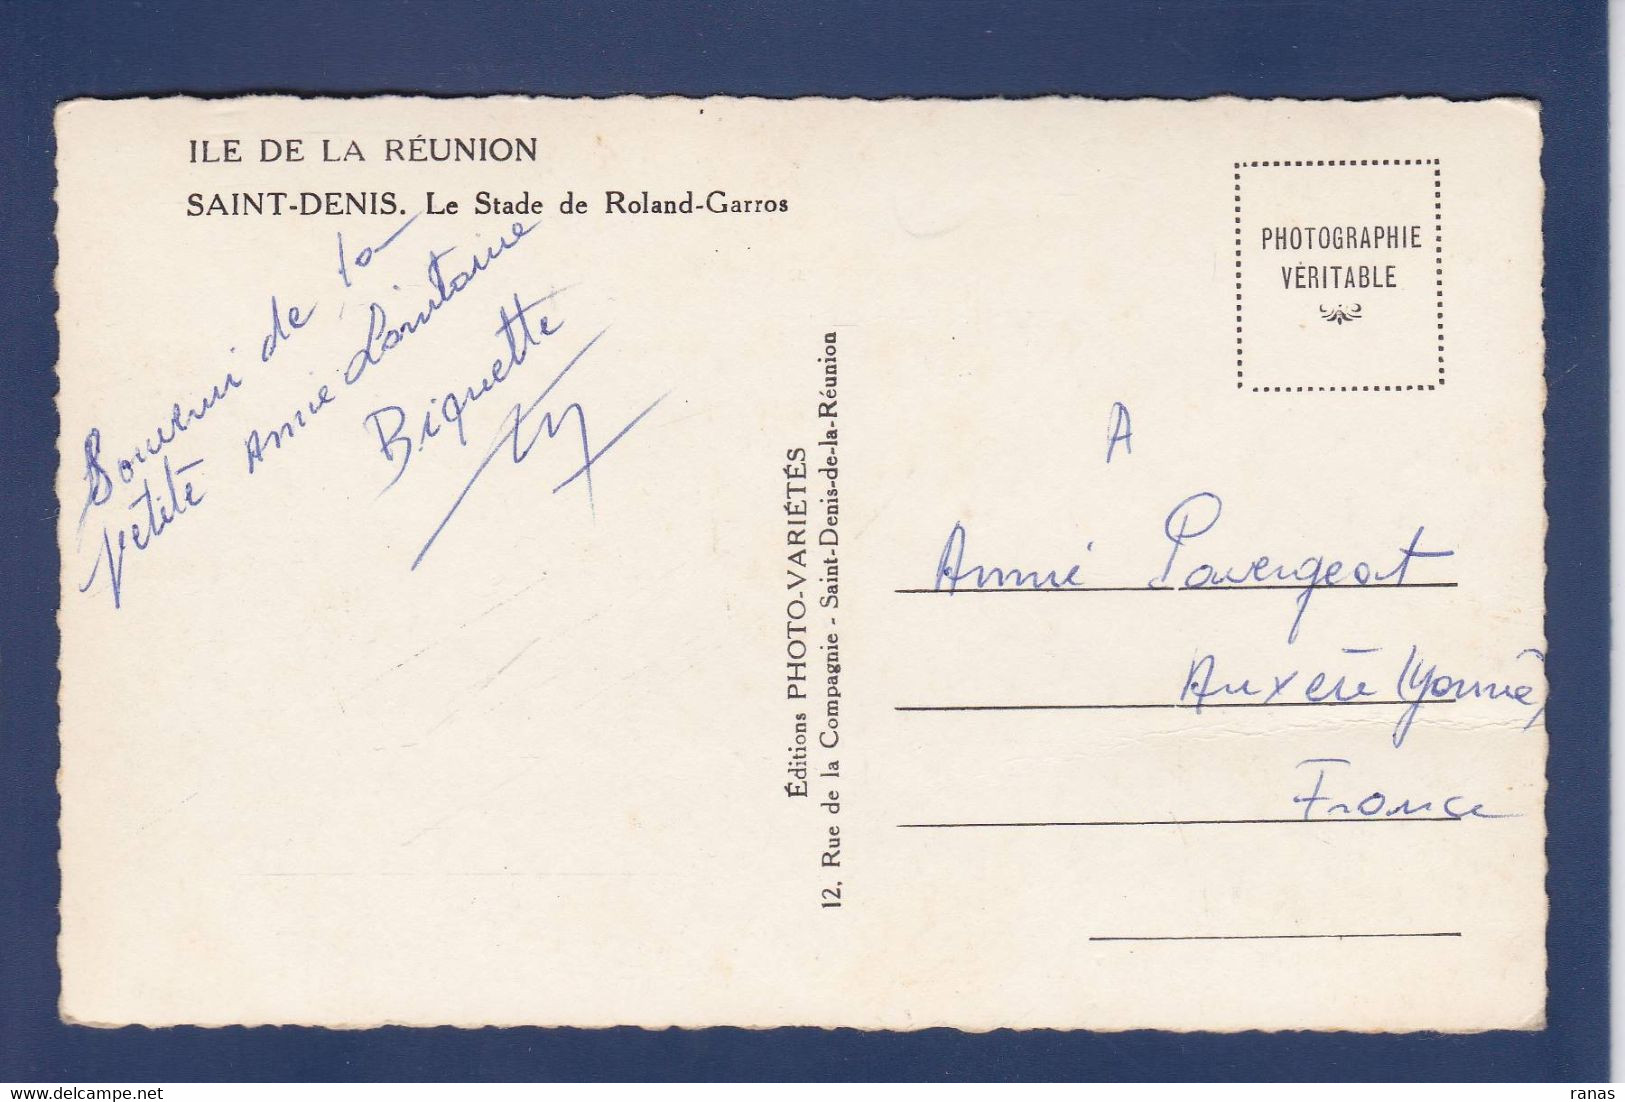 ILE DE LA RÉUNION
SAINT-DENIS. Le Stade de Roland-Garros
Souvenir de ta
petite Amie Lointaine
Biquette
PHOTOGRAPHIE
VÉRITABLE
Éditions PHOTO-VARIÉTÉS
12, Rue de la Compagnie - Saint-Denis-de-la-Réunion
A
Annie Pavergeat
Auxerre (Yonne)
France
ranas